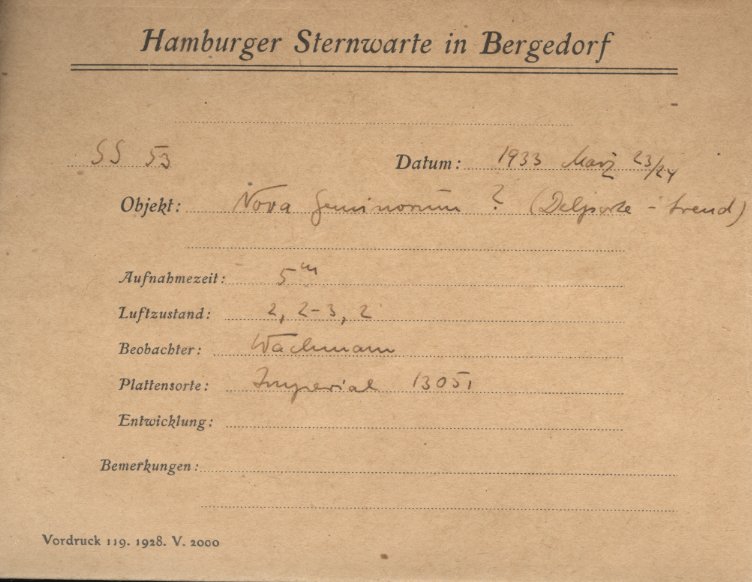 Hamburger Sternwarte in Bergedorf
SS 53 Datum: 1933 März 23/24
Objekt: Nova Geminorum ? (Delporte -
Aufnahmezeit: 5m
Luftzustand: 2, 2-3, 2
Beobachter: Wachmann
Plattensorte: Imperial 13051
Entwicklung:
Bemerkungen:
Vordruck 119. 1928. V. 2000